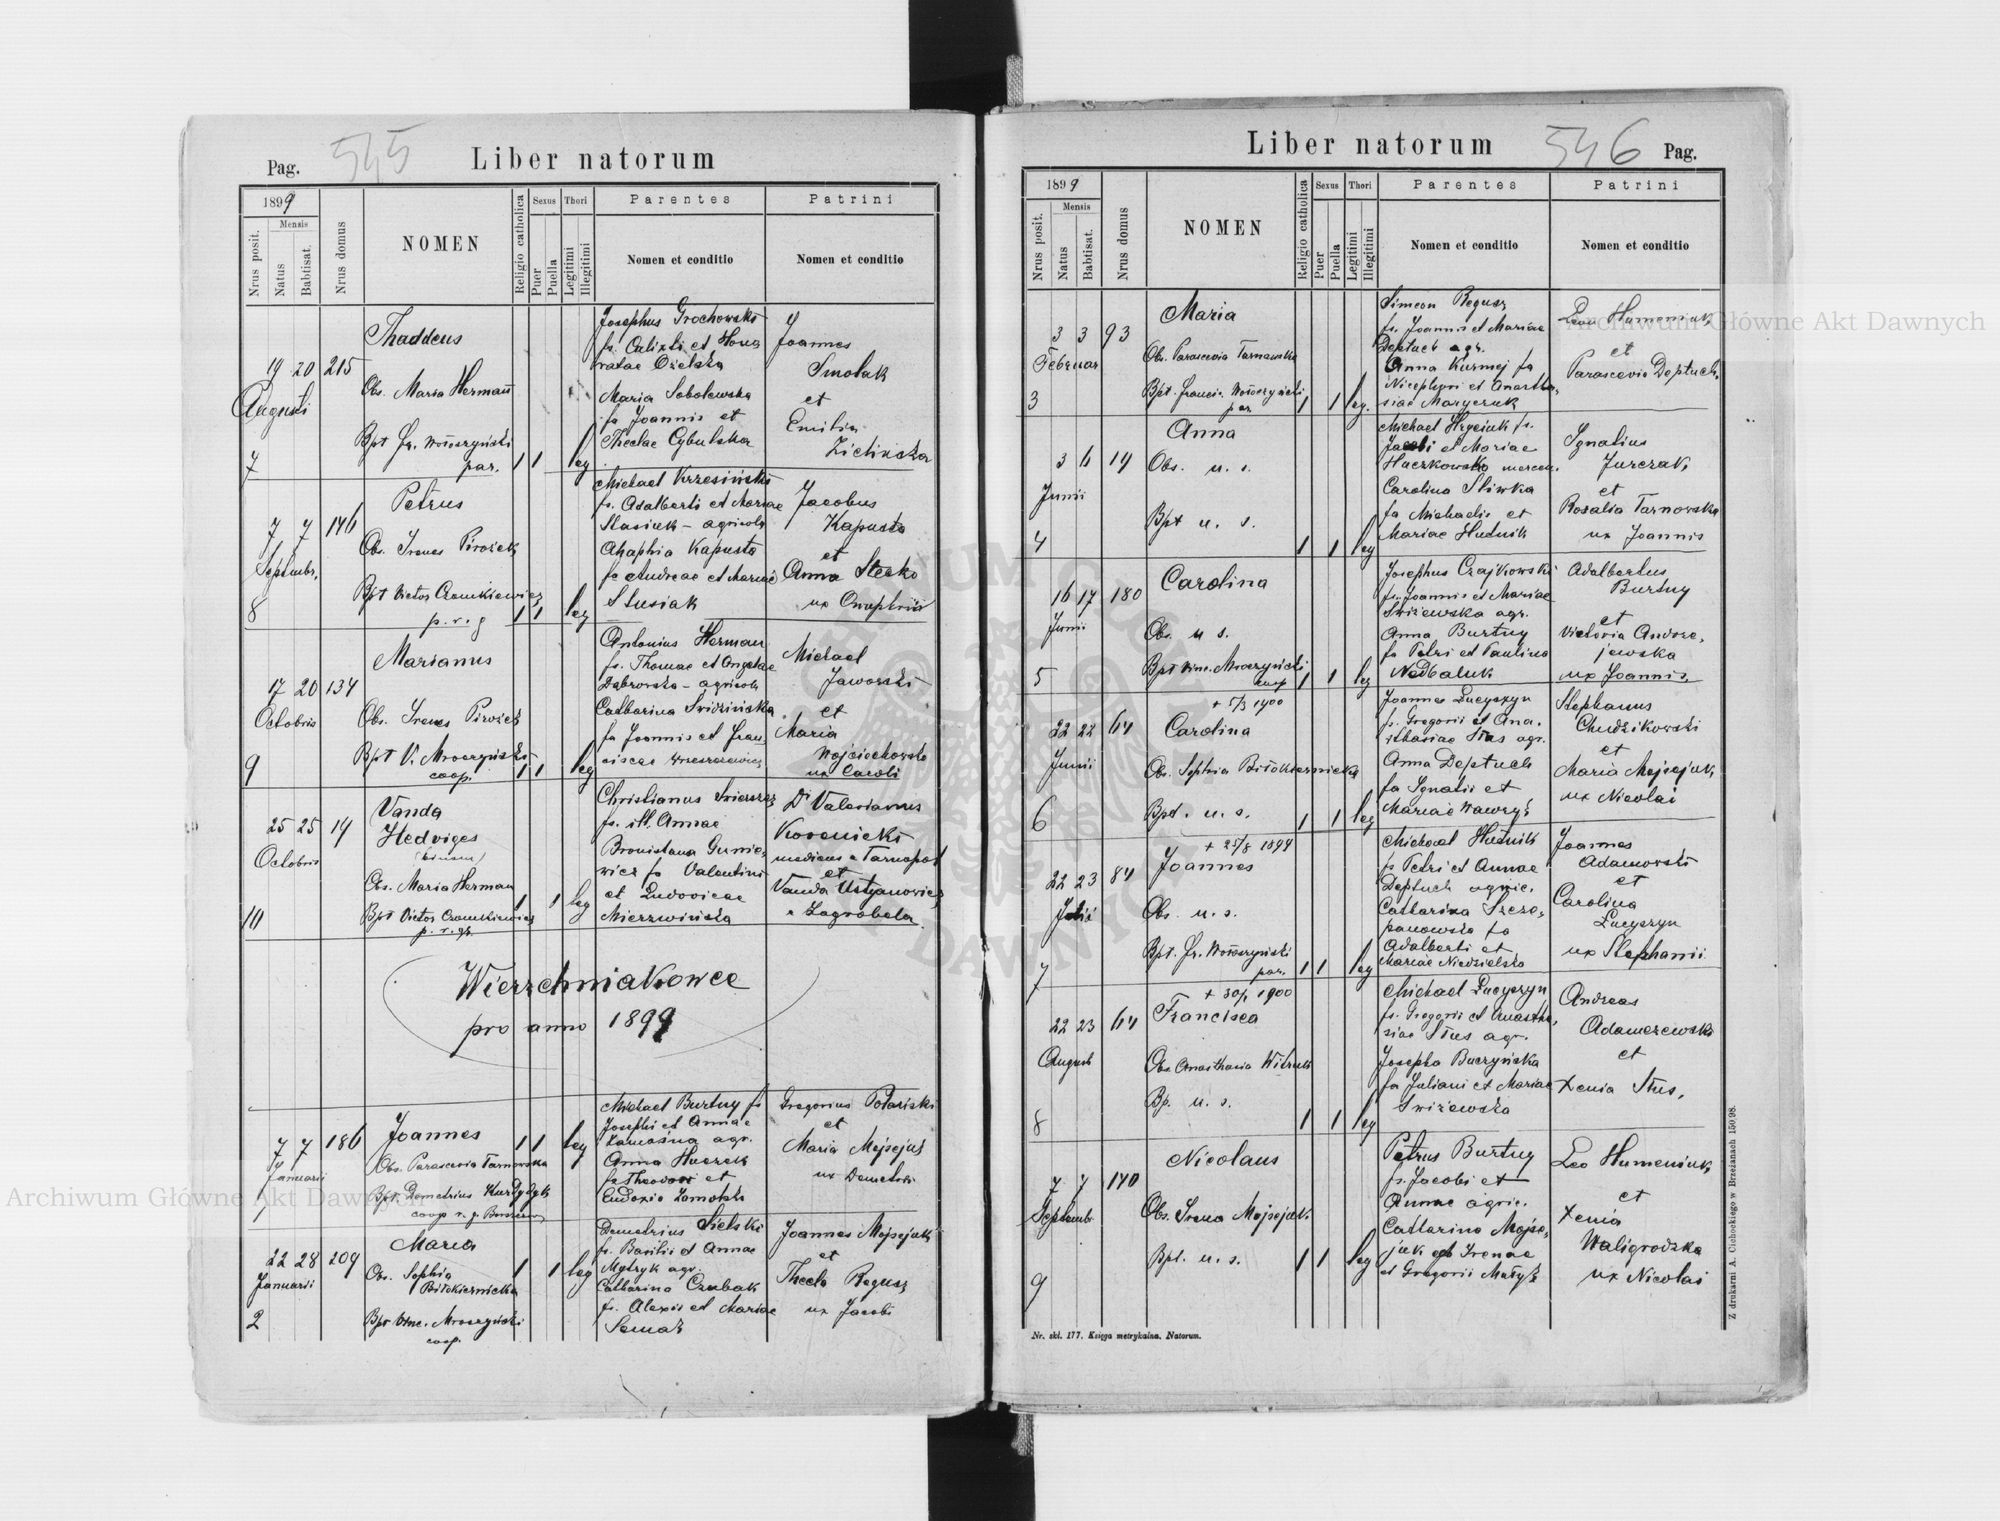 Pag. 545 Liber natorum
1899
Nrus posit.
Mensis
Natus
Babtisat.
Nrus domus
NOMEN
Religio catholica
Sexus
Puer
Puella
Thori
Legitimi
Illegitimi
Parentes
Nomen et conditio
Patrini
Nomen et conditio
7
19 20 215
Augusti
Thaddeus
Obs. Maria Hermann
Bpt fr. Wołoszyński
par.
1 1 leg
Josephus Grochowski
fs. Calixti et Hono
ratae Ozelska
Maria Sobolewska
fa Joannis et
Theclae Cybulska
Joannes
Smolak
et
Emilia
Zielinska
8
7 7 146
Septembr.
Petrus
Obs. Irenes Pirożek
Bpt Victor Czamkiewicz
p. r. g
1 1 leg
Michael Krzesiński
fs. Adalberti et Mariae
Stasiuk - agricola
Ahaphia Kapusta
fa Andreae et Mariae
Stusiak
Jacobus
Kapusta
et
Anna Stecko
ux Onuphrii
9
17 20 134
Octobris
Marianus
Obs. Irenes Pirożek
Bpt V. Mroczyński
coop.
1 1 leg
Antonius Herman
fs. Thomae et Angelae
Dąbrowska - agricola
Catharina Swidzińska
fa Joannis et Fran
ciscae
Michael
Jaworski
et
Maria
Wojciechowska
ux Caroli
10
25 25 14
Octobris
Vanda
Hedviges
(binom)
Obs. Maria Herman
Bpt Victor Czamkiewicz
p. r. gr.
1 1 leg
Christianus Swierszcz
fs. ill. Annae
Bronislava Gunie,
wicz fa Valentini
et Ludovicae
Mierzwińska
Dr Valerianus
Kroenicki
medicus a Tarnopol
et
Vanda Ustyanowicz
a Zagrobela
Wierzchniakowce
pro anno 1899
1
7 7 186
Januarii
Joannes
Obs. Parascevia Tarnowska
Bpt. Demetrius Kurdydyk
coop r. g. Borszczow
1 1 leg
Michael Burtny fs
Josephi et Annae
Zamośna agr.
Anna Huczek
fa Theodori et
Eudoxia
Gregorius Polański
et
Maria Mojsejuk
ux Demetrii
2
22 28 209
Januarii
Maria
Obs. Sophia
Biłokiernicka
Bpt Vinc. Mroczyński
coop.
1 1 leg
Demetrius Sielski
fs. Basilii et Annae
Mytryk agr.
Catharina Czubak
fs. Alexii et Mariae
Semak
Joannes Mojsejuk
et
Thecla Regusz
ux Jacobi
Liber natorum 546 Pag.
1899
Nrus posit.
Mensis
Natus
Babtisat.
Nrus domus
NOMEN
Religio catholica
Sexus
Puer
Puella
Thori
Legitimi
Illegitimi
Parentes
Nomen et conditio
Patrini
Nomen et conditio
3
3 3 93
Februar
Maria
Obs. Parascevia Tarnawska
Bpt. francis. Wołoszyński
par
1 1 leg.
Simeon Regusz
fs. Joannis et Mariae
Deptuch agr.
Anna Kuzmej fa
Nicephori et Anastha,
siae Maryczuk
Leon Humeniuk
et
Parascevia Deptuch.
4
3 6 14
Junii
Anna
Obs. u. s.
Bpt u. s.
1 1 leg
Michael Hryciuk fs.
Jacobi et Mariae
Huczkowska mercen.
Carolina Sliwka
fa Michaelis et
Mariae Hudnik
Ignatius
Jurczak
et
Rosalia Tarnowska
ux Joannis
5
16 17 180
Junii
Carolina
Obs. u s.
Bpt Vinc. Mroczyński
coop
1 1 leg
Josephus Czajkowski
fs. Joannis et Mariae
Swiżewska agr.
Anna Burtny
fa Petri et Paulina
Nedbaluk
Adalbertus
Burtny
et
Victoria Andrze,
jewska
ux Joannis.
6
22 22 64
Junii
+ 5/3 1900
Carolina
Obs. Sophia Biłokiernicka
Bpt. u. s.
1 1 leg
Joannes Łucyszyn
fs. Gregorii et Ana.
sthasiae Stus agr.
Anna Deptuch
fa Ignatii et
Mariae Wawryś
Stephanus
Chudzikowski
et
Maria Mojsejuk
ux Nicolai
7
22 23 84
Julii
+ 25/8 1899
Joannes
Obs. u. s.
Bpt. fr. Wołoszyński
par.
1 1 leg
Michael Hudnik
fs Petri et Annae
Deptuch agric.
Catharina Szcze,
panowska fa
Adalberti et
Mariae Niedzielska
Joannes
Adamowski
et
Carolina
Łucyszyn
ux Stephanii
8
22 23 64
Augusti
+ 30/1 1900
Francisca
Obs. Anasthasia Witruk
Bp. u. s.
1 1 leg
Michael Łucyszyn
fs. Gregorii et Anastha,
siae Stus agr.
Josepha Buczyńska
fa Juliani et Mariae
Swiżewska
Andreas
Adamczewski
et
Xenia Stus.
9
7 7 140
Septembr
Nicolaus
Obs. Irena Mojsejuk.
Bpt. u. s.
1 1 leg
Petrus Burtny
fs. Jacobi et
Annae agric.
Catharina Mojse,
juk Irenae
et Gregorii Małyk
Leo Humeniuk
et
Xenia
Waligrodzka
ux Nicolai
Nr. skl. 177. Księga metrykalna. Natorum.
Z drukarni A. Cichockiego w Brzeżanach 150 98.
Archiwum Główne Akt Dawnych
Archiwum Główne Akt Dawnych
ARCHIWUM GŁÓWNE AKT DAWNYCH